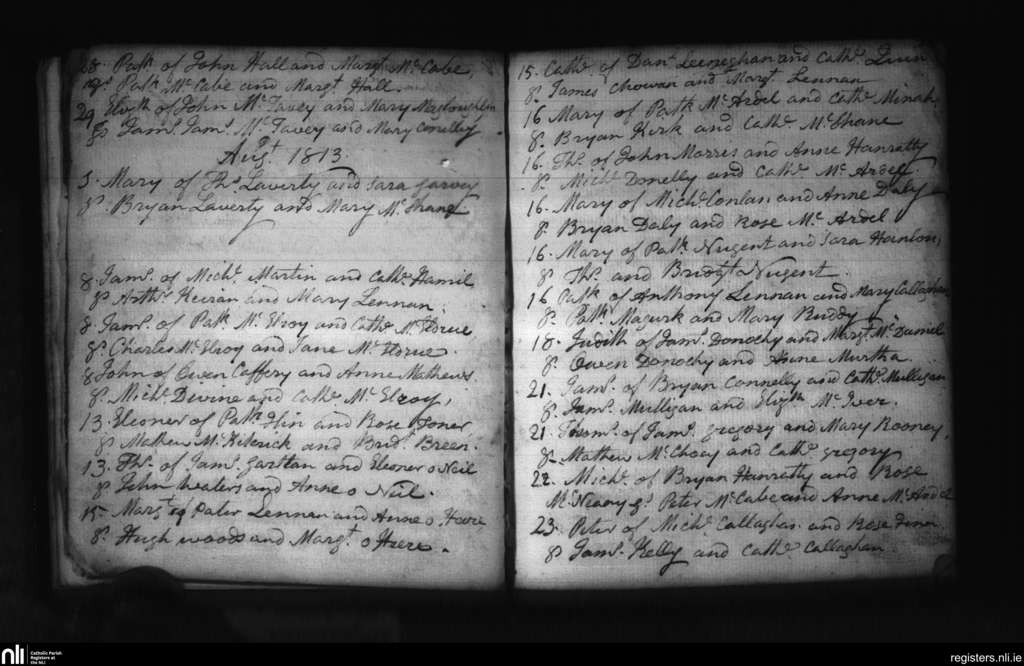 28. Patk of John Hall and Margt McCabe,
gs. Patk McCabe and Margt Hall.
29 Elizth of John McTavey and Mary Magloughlin
gs Jams. Jams. McTavey and Mary Conelly
Augt 1813.
5. Mary of Ths. Laverty and Sara Garvey
gs. Bryan Laverty and Mary McShane
8. Jams. of Michl. Martin and Cathe. Hamil
gs Arthr. Keiran and Mary Lennan.
8. Jams. of Patk McElroy and Cathe
gs. Charles McElroy and Jane
8 John of Owen Caffery and Anne Mathews.
gs. Michl. Divine and Cathe McElroy,
13. Eleoner of Patk and Rose
gs Mathew and Bridt. Breen.
13. Ths. of Jams. Gartlan and Eleoner o Neil
gs John Waters and Anne o Neil.
15. Margt of Peter Lennan and Anne o Here
gs. Hugh Woods and Margt. o Here.
15. Cathe. of Danl and Cathe. Quin
gs. James Chowan and Margt Lennan
16 Mary of Patk McArdel and Cathe Minah,
gs. Bryan Kirk and Cathe. McShane
16. Ths. of John Morris and Anne Hanratty
gs. Michl. Donelly and Cathe McArdel
16. Mary of Michl. Conlan and Anne Daly
gs. Bryan Daly and Rose McArdel
16. Mary of Patk Nugent and Sara Hanlon,
gs Ths. and Bridgt Nugent.
16 Patk of Anthony Lennan and Mary Callaghan
gs. Patk Magurk and Mary Buddy
18. Judith of Jams. Donochy and Margt McDaniel
gs. Owen Donochy and Anne Murtha.
21. Jams. of Bryan Connelly and Cathe. Mulligan
gs. Jams. Mulligan and Elizth McIver.
21. of Jams. Gregory and Mary Rooney,
gs. Mathew McChoey and Cathe. Gregory
22. Michl. of Bryan Hanratty and Rose
gs. Peter McCabe and Anne McArdel
23. Peter of Michl. Callaghan and Rose Finn
gs Jams. Kelly and Cathe Callaghan
nli
Catholic Parish
Registers at
the NLI
registers.nli.ie